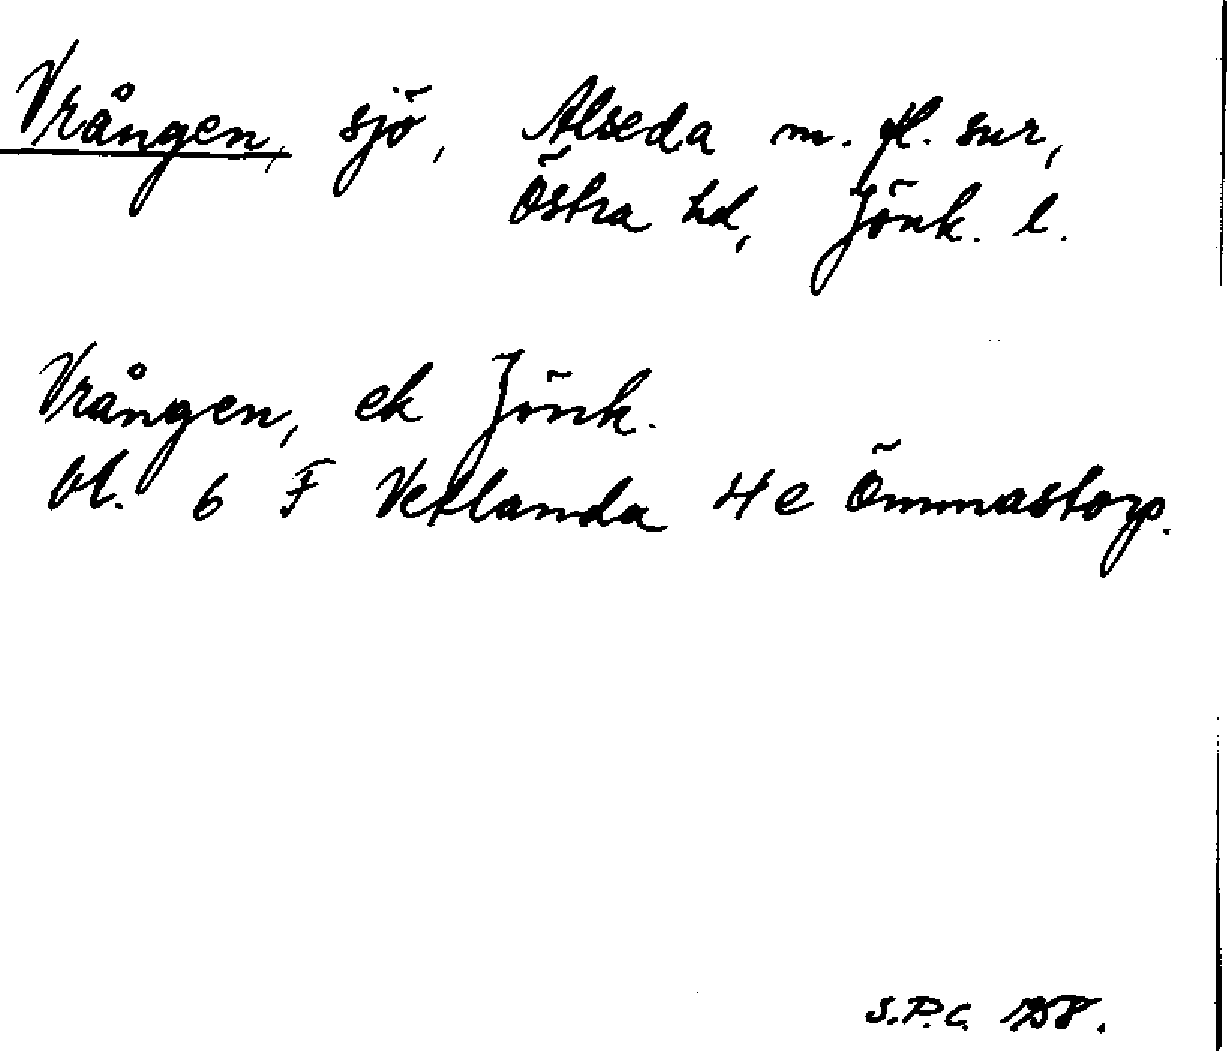 Vrången, sjö, Alseda m. fl. snr,
Östra hd, Jönk. l.
Vrången, ek Jönk.
bl. 6 F Vetlanda 4 e Ömmastorp.
S.P.C. 1958.